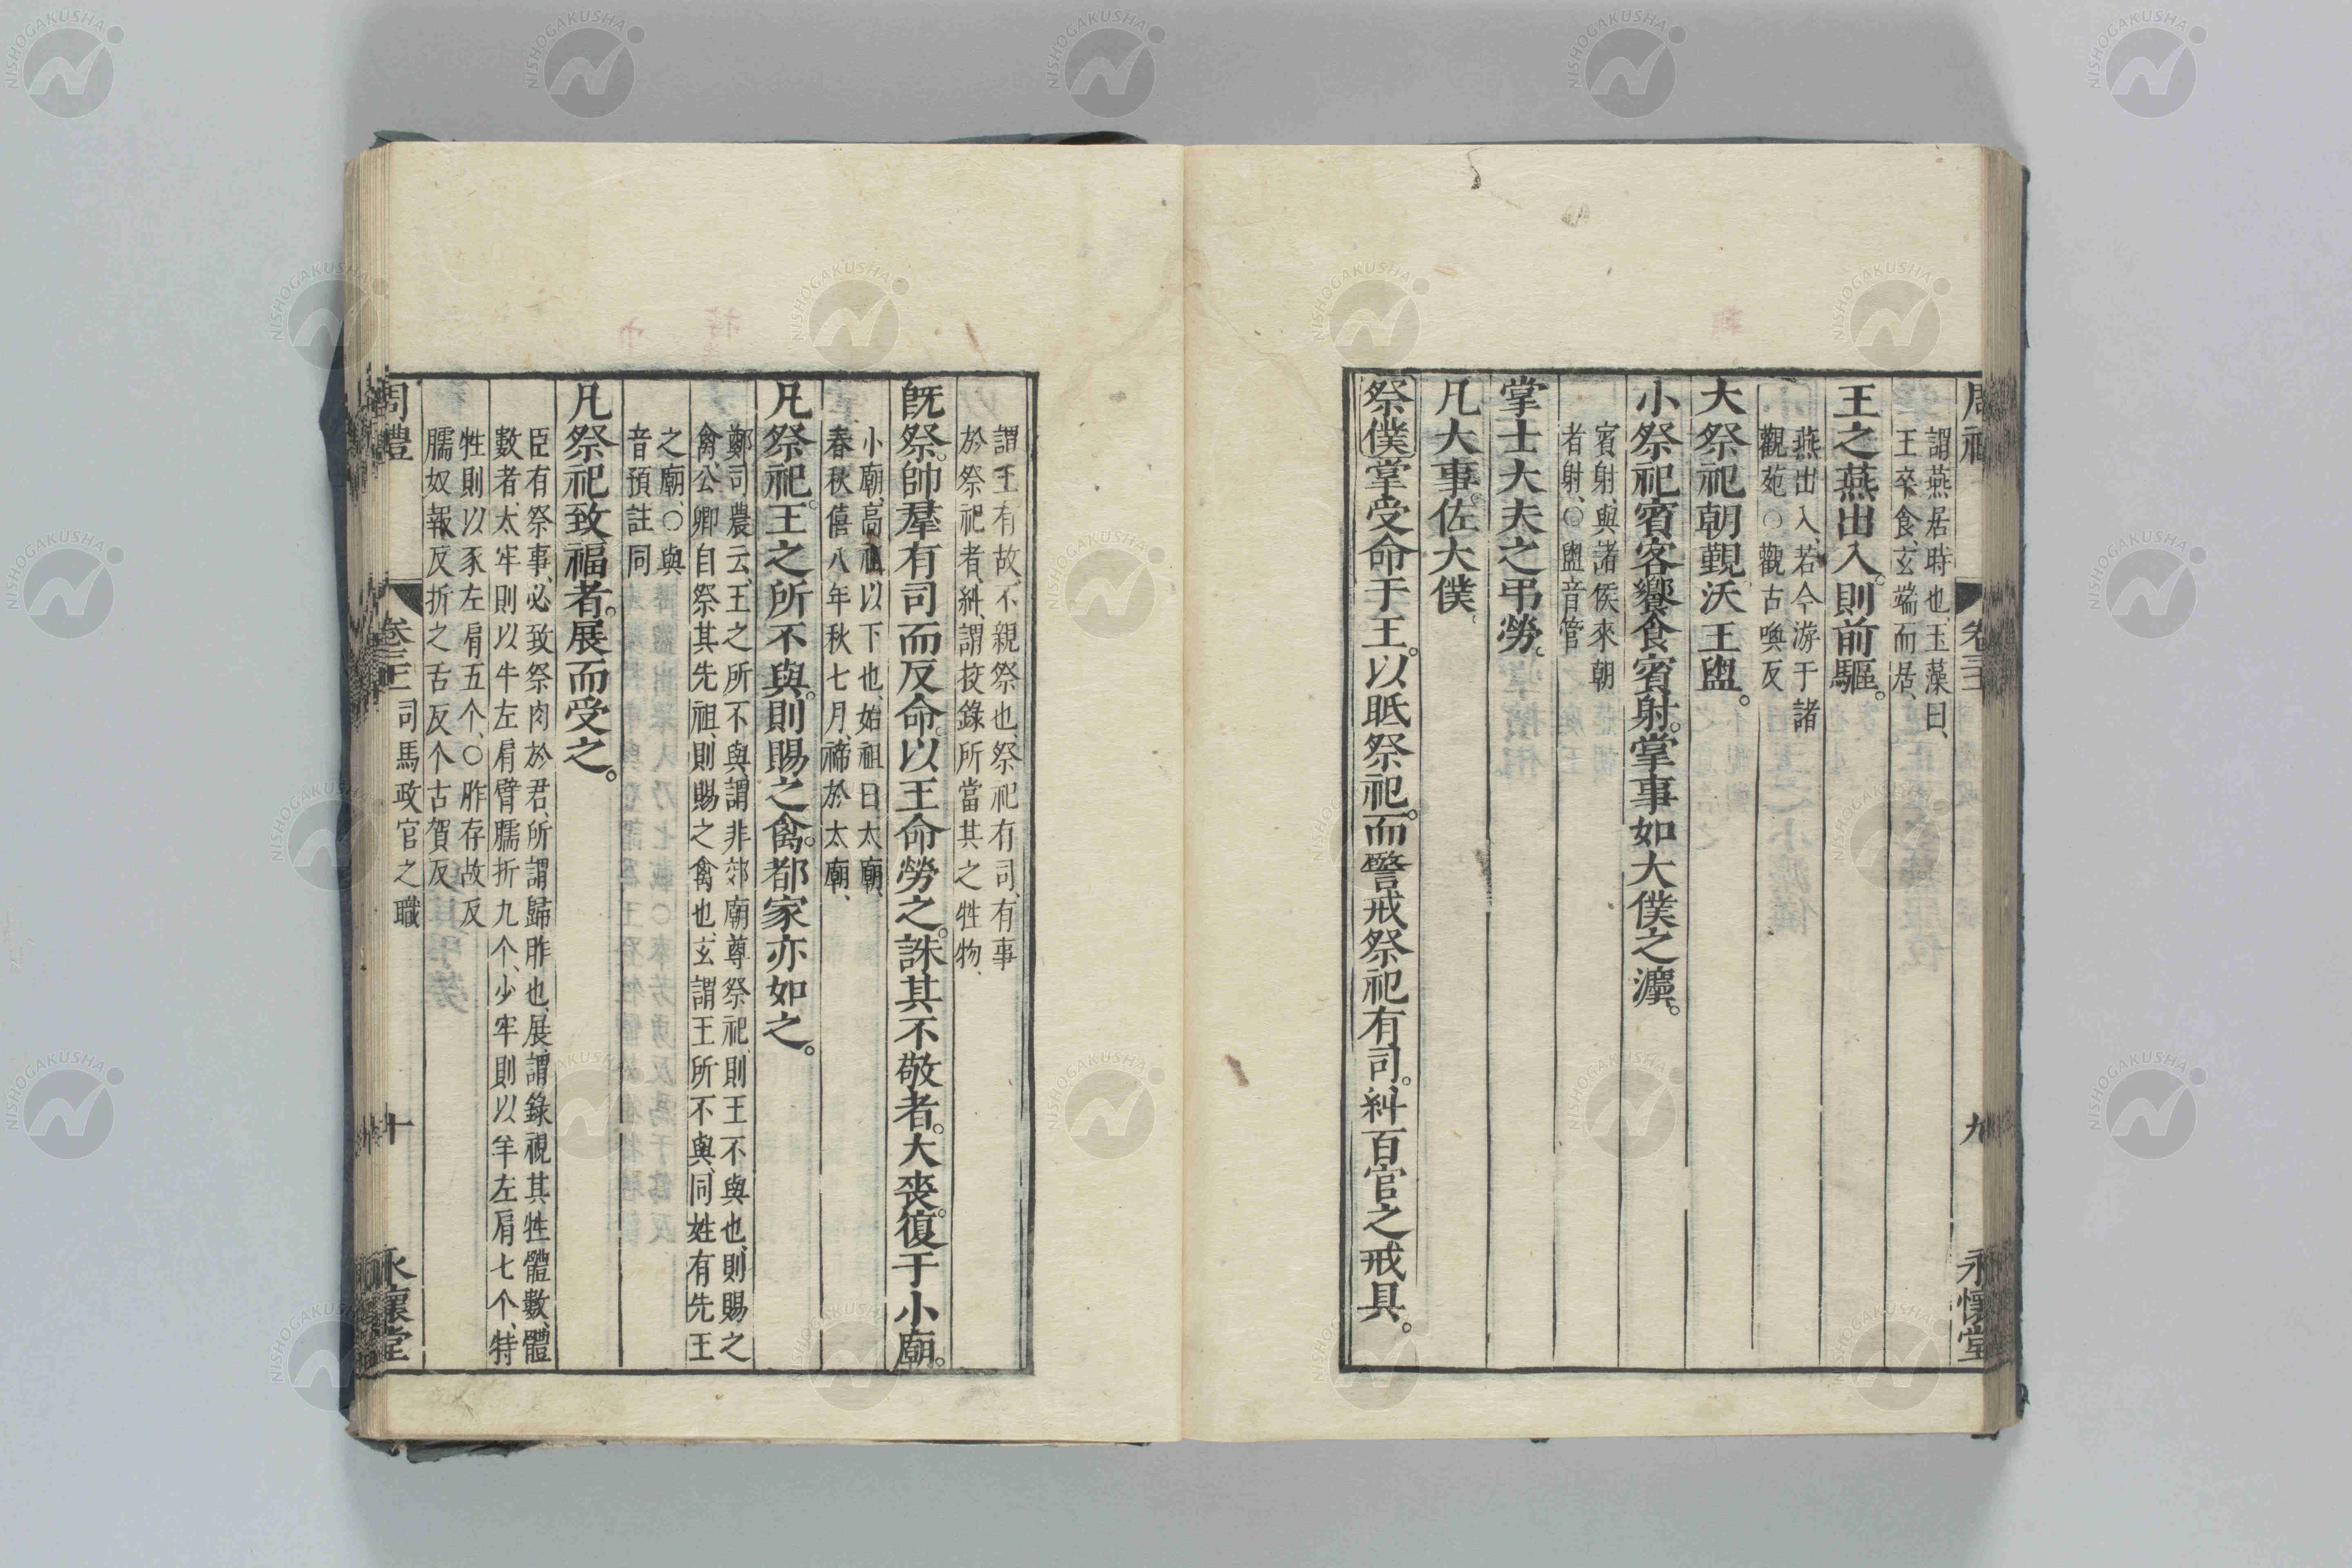 謂燕居時也、玉藻曰、
王卒食玄端而居、
王之燕出入。則前驅。
燕出入、若今游于諸
觀苑○觀古喚反
大祭祀朝覲沃王盥。
小祭祀賓客饗食賓射。掌事如大僕之灋。
賓射、與諸侯來朝
者射、○盥音管
掌士大夫之弔勞。
凡大事。佐大僕。
祭僕掌受命于王。以眡祭祀。而警戒祭祀有司。糾百官之戒具。
卷三
九
永懷堂
謂王有故、不親祭也、祭祀有司、有事
於祭祀者、糾、謂挍錄所當其之牲物、
旣祭。帥羣有司而反命。以王命勞之。誅其不敬者。大喪。復于小廟。
小廟、高祖以下也、始祖曰太廟、
春秋僖八年秋七月、禘於太廟、
凡祭祀。王之所不與。則賜之禽。都家亦如之。
鄭司農云、王之所不與、謂非郊廟尊祭祀、則王不與也、則賜之
禽、公卿自祭其先祖、則賜之禽也、玄謂王所不與、同姓有先王
之廟、○與
音預註同
凡祭祀致福者。展而受之。
臣有祭事、必致祭肉於君、所謂歸胙也、展、謂錄視其牲體數、體
數者、太牢則以牛左肩臂臑折九个、少牢則以羊左肩七个、特
牲則以豕左肩五个、○胙存故反
臑奴報反折之舌反个古賀反
周禮
卷三
司馬政官之職
十
永懷堂
NISHOGAKUSHA